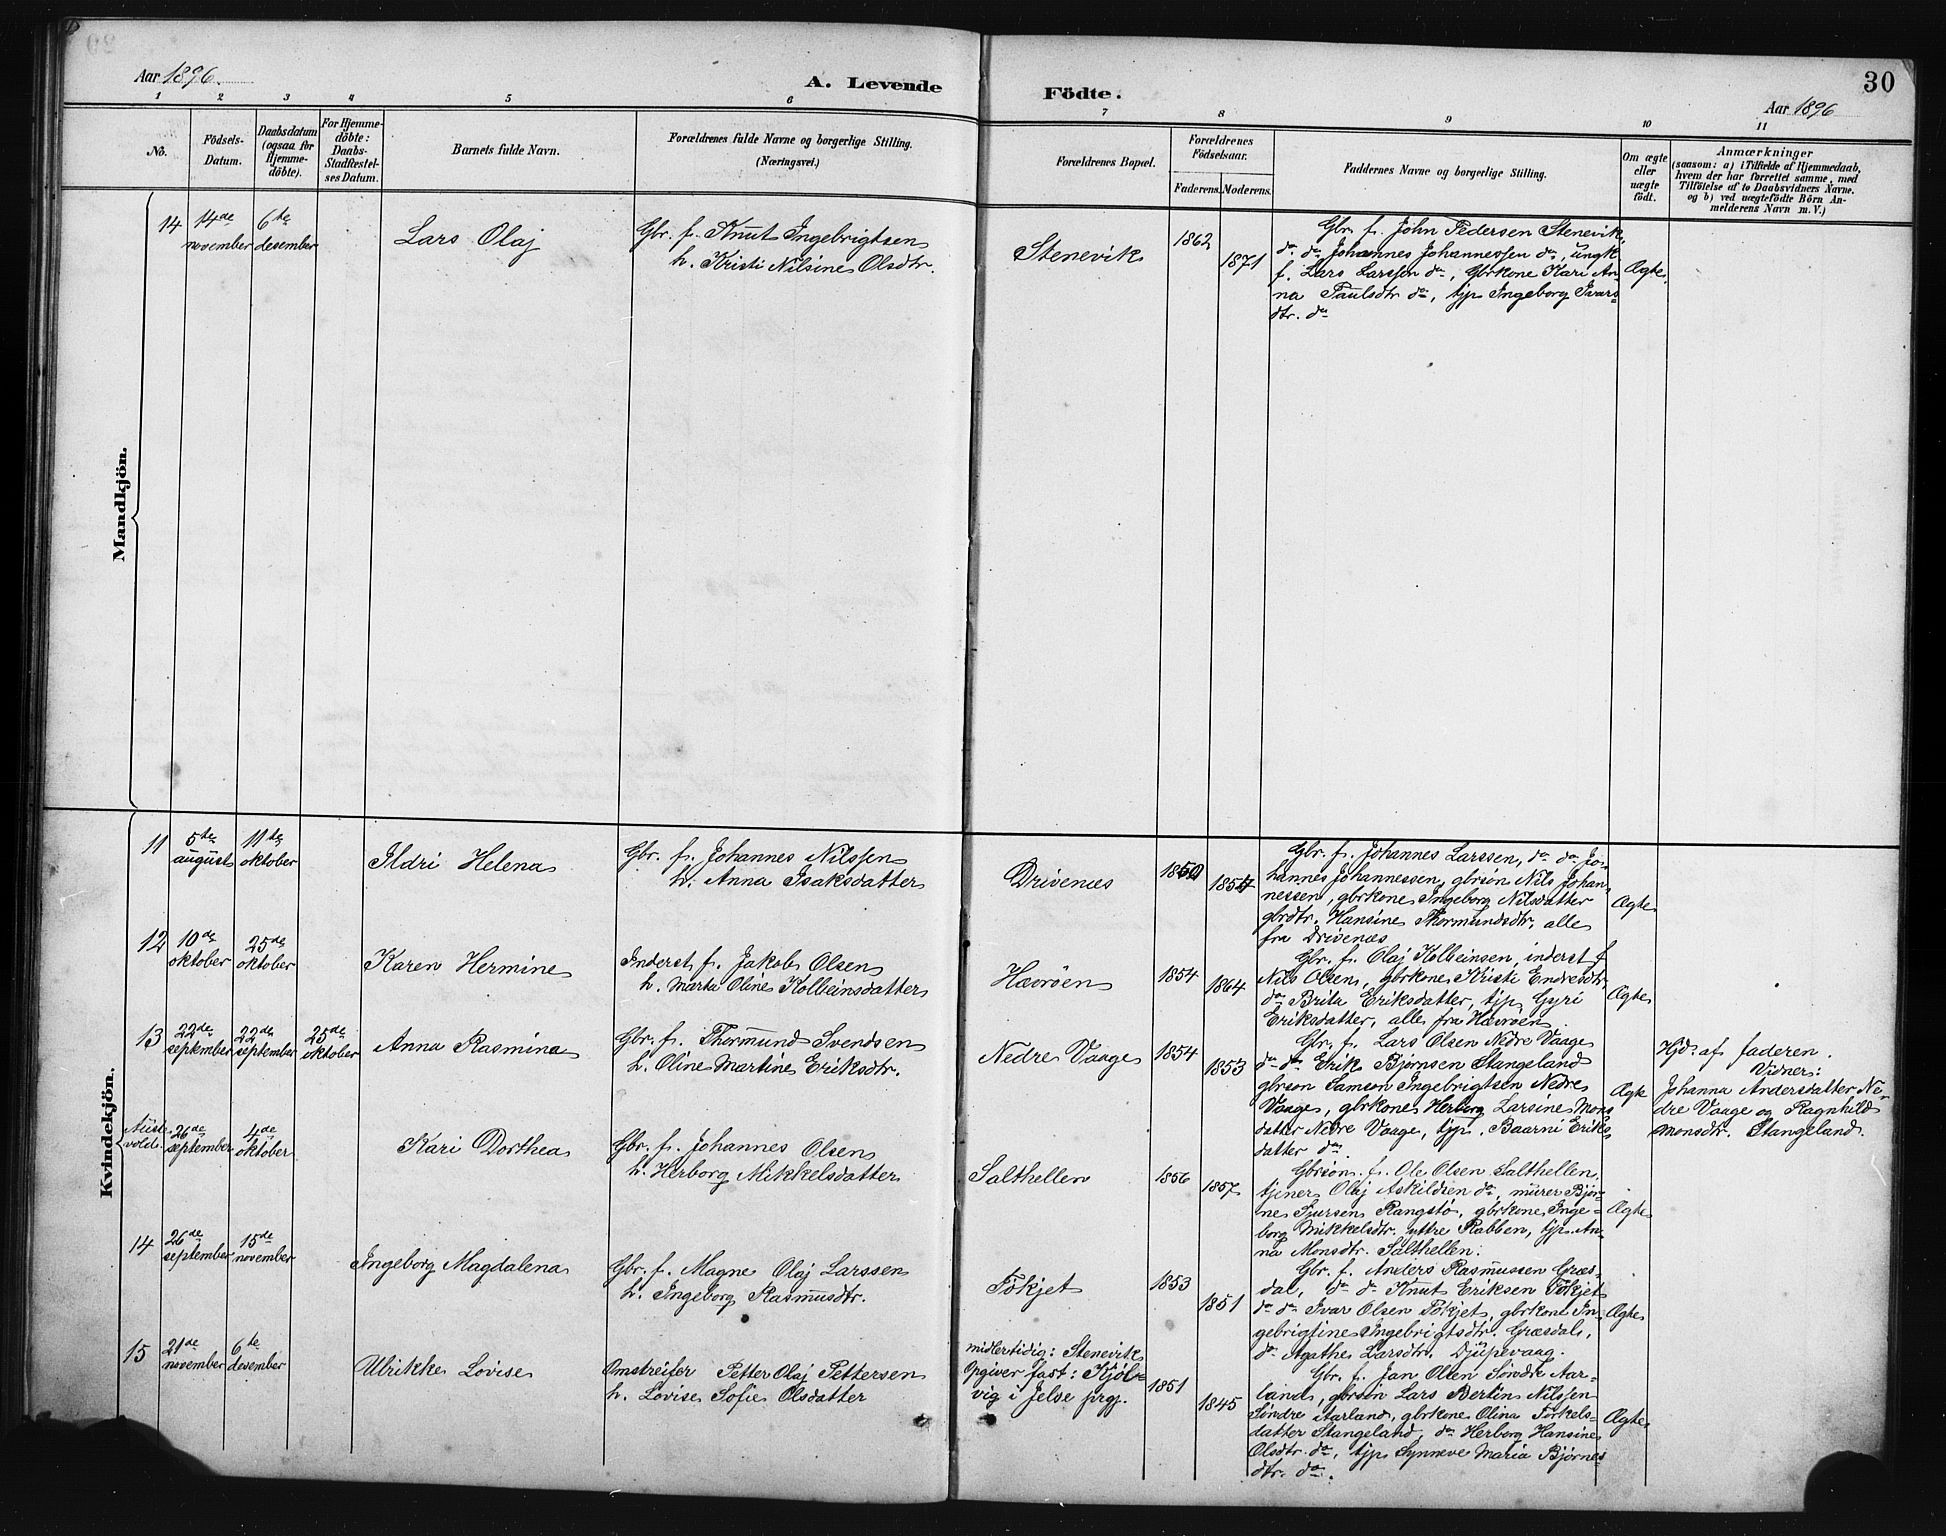 Aar 1896.
A. Levende
Födte.
30
Aar 1896
1 2 3 4 5 6 7 8 9 10 11
No.
Födsels-
Datum.
Daabsdatum
(ogsaa for
Hjemme-
döbte).
For Hjemme-
döbte:
Daabs-
Stadfæstel-
ses Datum.
Barnets fulde Navn.
Forældrenes fulde Navne og borgerlige Stilling.
(Næringsvei.)
Forældrenes Bopæl.
Forældrenes
Födselsaar.
Faderens.
Moderens.
Faddernes Navne og borgerlige Stilling.
Om ægte
eller
uægte
födt.
Anmærkninger
(saasom: a) i Tilfælde af Hjemmedaab,
hvem der har forrettet samme, med
Tilföielse af to Daabsvidners Navne.
og b) ved uægtefödte Börn An-
melderens Navn m. V.)
Mandkjön.
14
14de
november
6te
desember
Lars Olaj
Gbr. f. Knut Ingebrigtsen
h. Kristi Nilsine Olsdtr.
Stenevik
1862
1871
Gbr. f. John Pedersen Stenevik,
do do Johannes Johannessen do, ungk
f. Lars Larssen do, Gbrkone Kari An-
na Paulsdtr do, tjp Ingeborg Ivars-
dtr. do
Ægte
Kvindekjön.
11
5te
august
11te
oktober
Ildri Helena
Gbr. f. Johannes Nilssen
h. Anna Isaksdatter
Drivenes
Gbr. f. Johannes Larssen, do do Jo-
hannes Johannessen, gbrsön Nils Johan-
nessen, gbrkone Ingeborg Nilsdatter
gbrdtr. Hansine Thormundsdtr, alle
fra Drivenes
Ægte
12
10de
oktober
25de
oktober
Karen Hermine
Inderst f. Jakob Olsen
h. Marta Oline Kolbeinsdatter
Hævröen
1854
1864
Gbr. f. Olaj Kolbeinsen, inderst f
Nils Olsen, gbrkone Kristi Endresdtr,
do Brita Eriksdatter, tjp Gyri
Eriksdatter, alle fra Hævröen
Ægte
13
22de
september
22de
september
25de
oktober
Anna Rasmina
Gbr. f. Thormund Svendsen
h. Oline Martine Eriksdtr.
Nedre Vaage
1854
1853
Gbr. f. Lars Olsen Nedre Vaage
do do Erik Bjørnsen Stangeland
gbrson Samson Ingebrigtsen Nedre
Vaage, gbrkone Herborg Larsine Mons
datter Nedre Vaage, tjp. Baarni Eriks
datter do.
Ægte
Hjd. af faderen.
Vidner:
Johanna Andersdatter Ne-
dre Vaage og Ragnhild
Monsdtr. Stangeland.
Auste-
vold
26de
september
4de
oktober
Kari Dorthea
Gbr. f. Johannes Olsen
h. Herborg Mikkelsdatter
Salthellen
1856
1857
Gbrsön. f. Ole Olsen Salthellen,
tjener Olaj Askildsen do, murer Bjør-
ne Sjursen Rangstø, gbrkone Inge-
borg Mikkelsdtr. uttre Rabben, tjp An-
na Monsdtr. Salthellen.
Ægte
14
26de
september
15de
november
Ingeborg Magdalena
Gbr. f. Magne Olaj Larssen
h. Ingeborg Rasmusdtr.
Fökjet
1853
1851
Gbr. f. Anders Rasmussen Græs-
dal, do do Knut Eriksen Fökjet
do do Ivar Olsen Fökjet, gbrkone In-
gebrigtine Ingebrigtsdtr. Græsdal,
do Agathe Larsdtr. Djupevaag.
Ægte
15
21de
november
6te
desember
Ulrikke Lovise
Omstreifer Petter Olaj Pettersen
h. Lovise Sofie Olsdatter
midlertidig: Stenevik
Opgiver fast: Kjøl-
vig i Jelse prgj.
1851
1845
Gbr. f. Jan Olsen Söndre Aar-
land, gbrsön Lars Bertin Nilssen
Söndre Aarland, gbrkone Olina Torkels-
datter Stangeland, do Herborg Hansine
Olsdtr. do, tjp Synneve Maria Bjørnes-
dtr. do.
Ægte